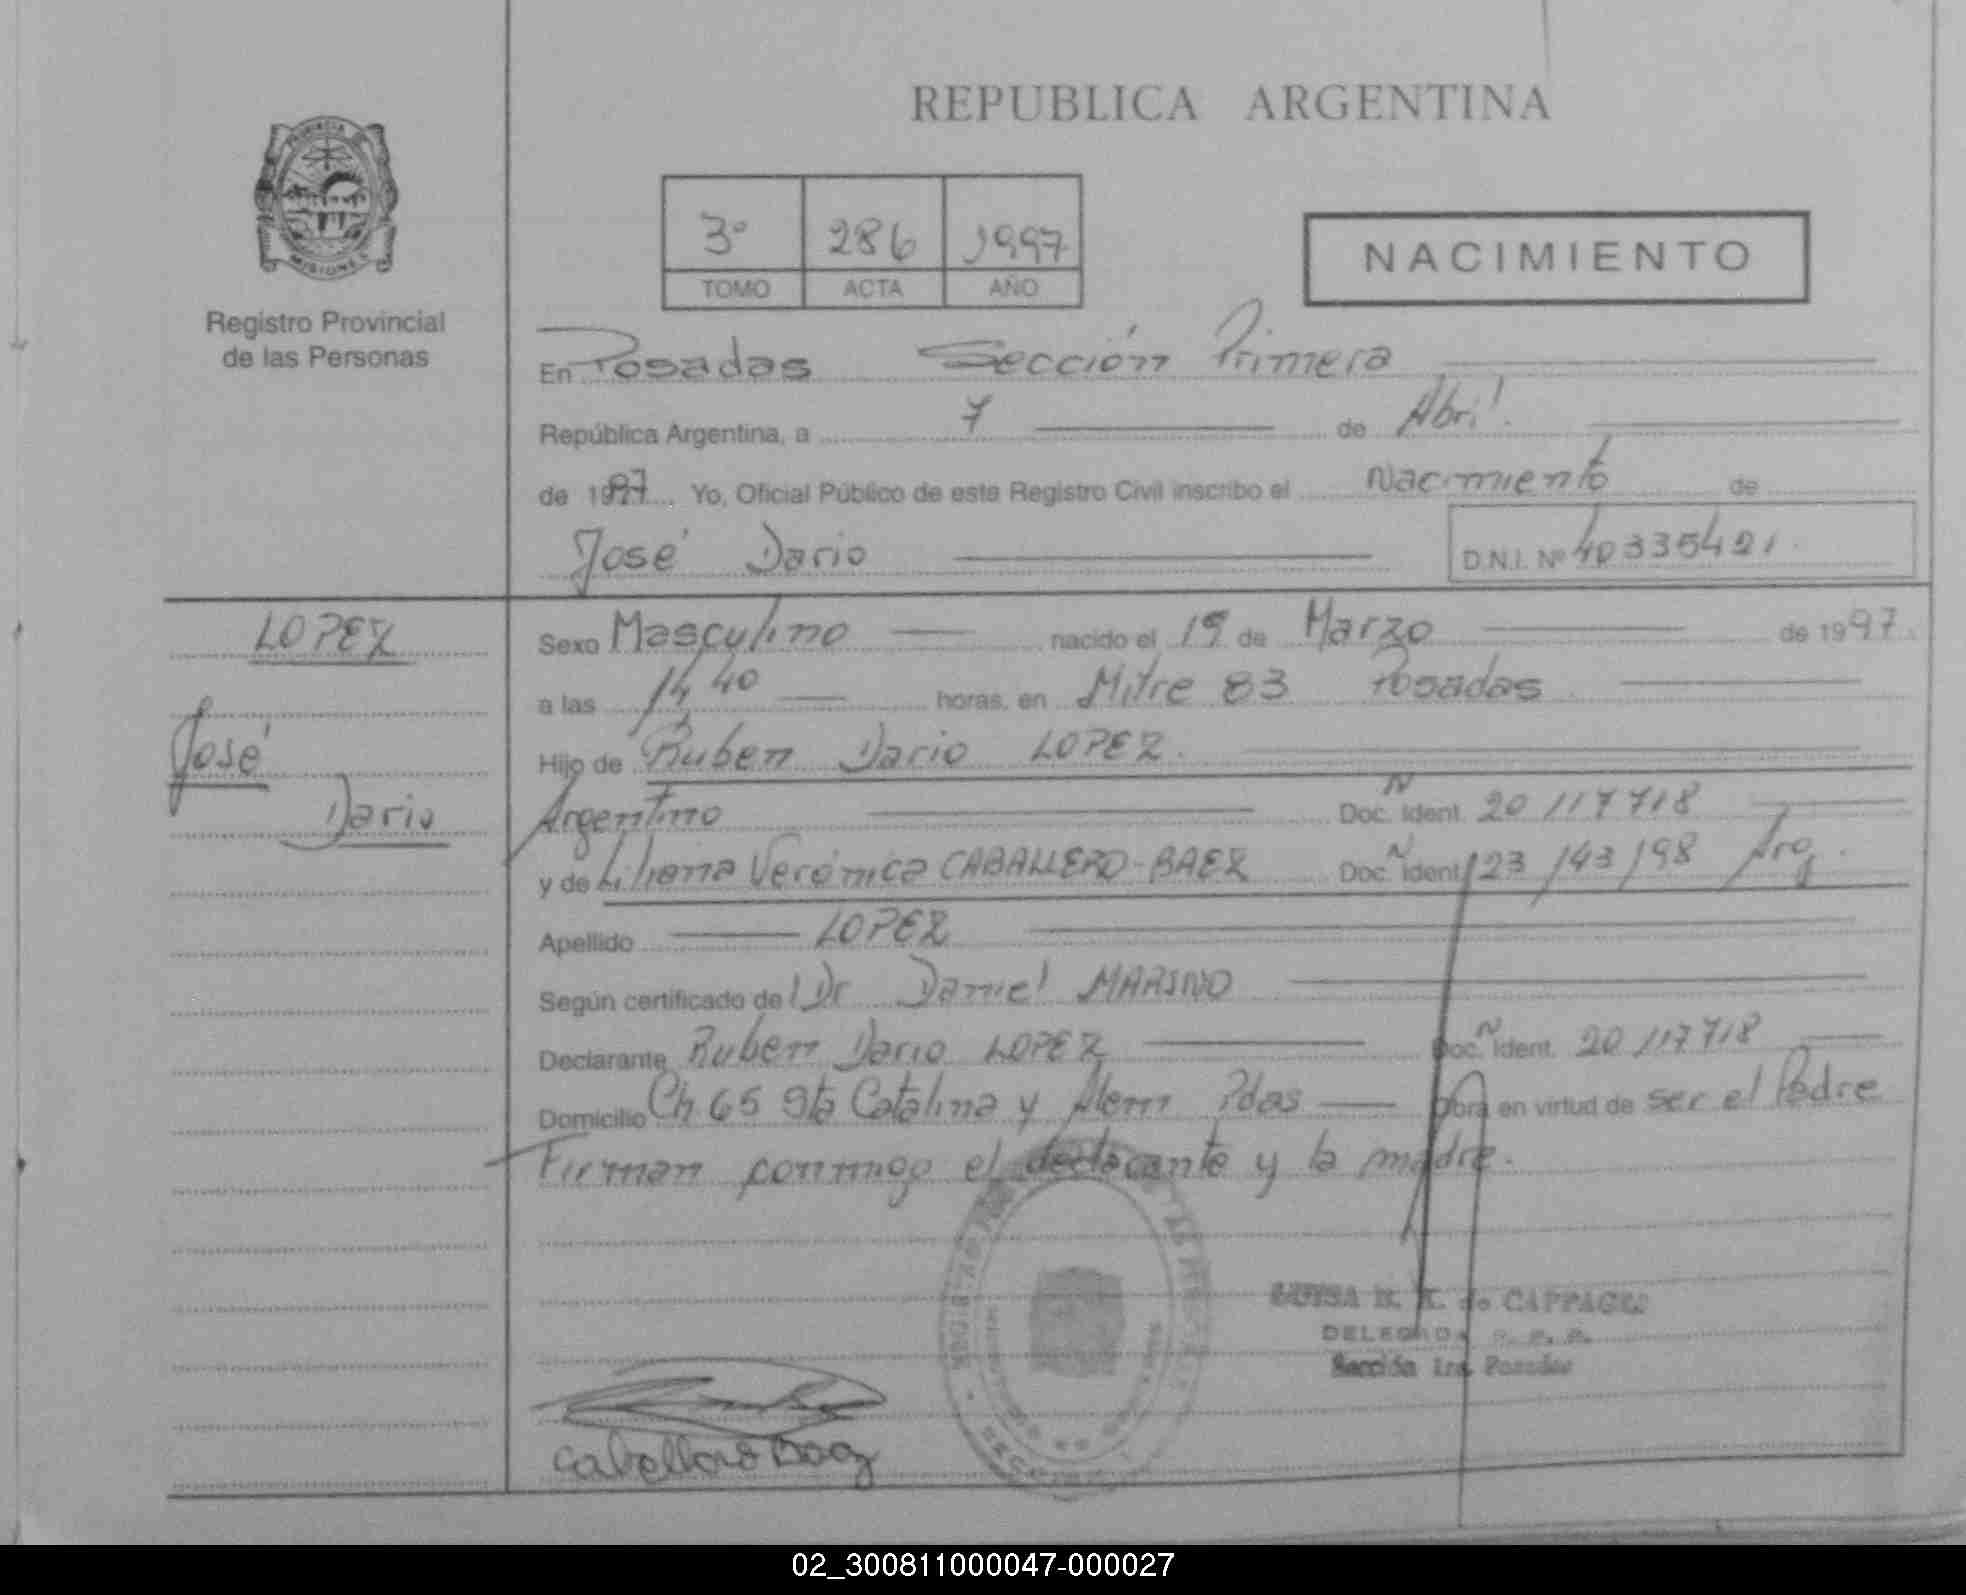 REPUBLICA ARGENTINA
PROVINCIA DE
MISIONES
Registro Provincial
de las Personas
3º 286 1997
TOMO ACTA AÑO
NACIMIENTO
En Posadas Sección Primera
República Argentina, a 7 de Abril
de 1997 Yo, Oficial Público de este Registro Civil inscribo el Nacimiento de
José Dario D.N.I. Nº 40335421
LOPEZ
José
Dario
Sexo Masculino nacido el 19 de Marzo de 1997
a las 14,40 horas, en Mitre 83 Posadas
Hijo de Ruben Dario LOPEZ.
Argentino Doc. N Ident. 20117718
y de Liliana Verónica CABALLERO-BAEZ Doc. N Ident. 23/43/98 Arg.
Apellido LOPEZ
Según certificado del Dr Daniel MARINO
Declarante Ruben Dario LOPEZ Doc. N Ident. 20117718
Domicilio Ch 65 Sta Catalina y Alem Pdas Obra en virtud de ser el Padre
Firman conmigo el declarante y la madre.
DELEGADA R. P. P.
Sección 1ra. Posadas
Caballero Baez
02_300811000047-000027